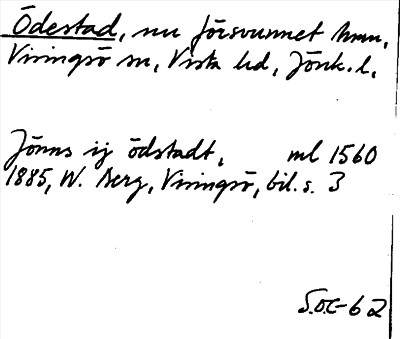 Ödestad, nu försvunnet hmn,
Visingsö sn, Vista hd, Jönk. l.
Jönns ij ödstadt, ml 1560
1885, W. Berg, Visingsö, bil. s. 3
S.O.C-62